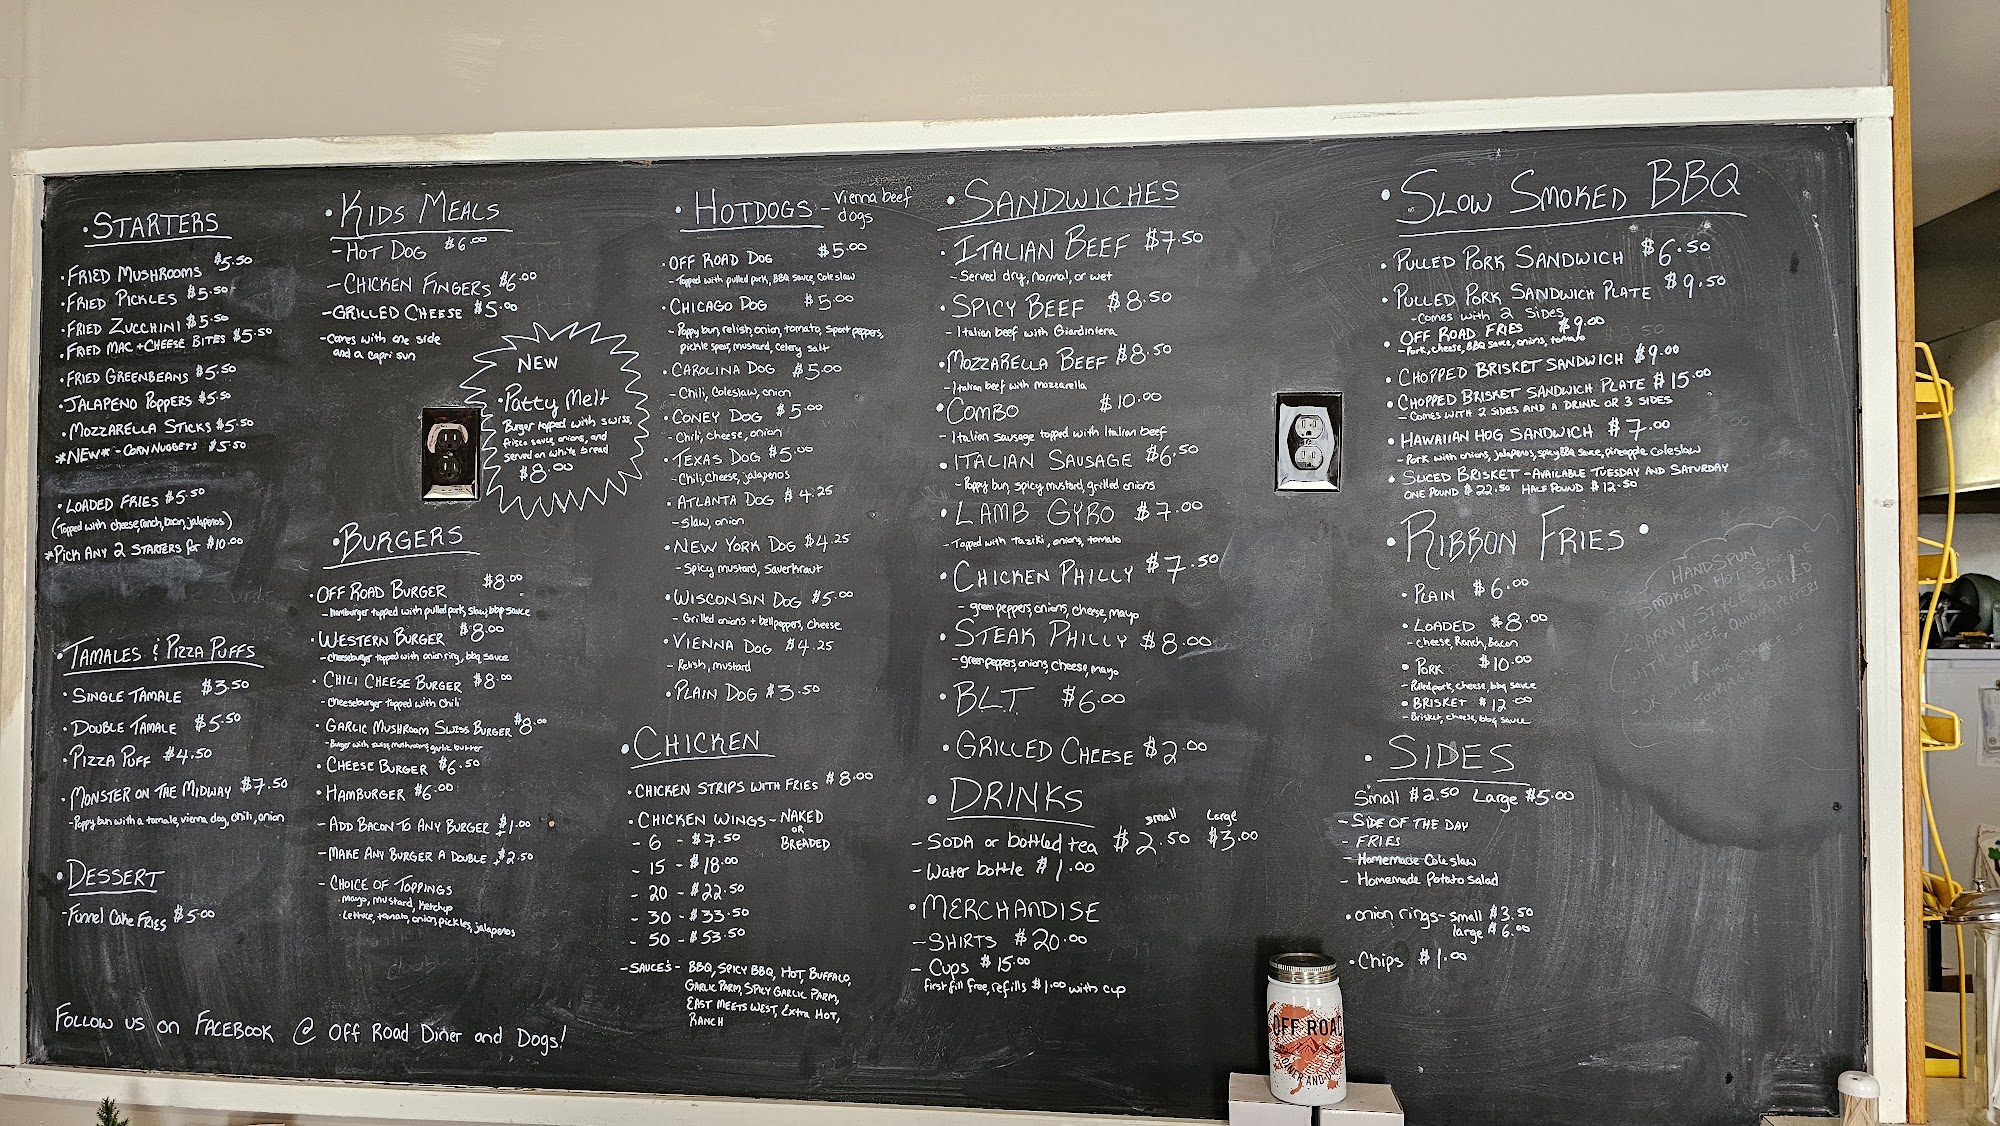 • STARTERS
• FRIED MUSHROOMS $5.50
• FRIED PICKLES $5.50
• FRIED ZUCCHINI $5.50
• FRIED MAC + CHEESE BITES $5.50
• FRIED GREENBEANS $5.50
• JALAPENO POPPERS $5.50
• MOZZARELLA STICKS $5.50
*NEW* - CORN NUGGETS $5.50
• LOADED FRIES $5.50
(Topped with cheese, ranch, bacon, jalapenos)
*PICK ANY 2 STARTERS for $10.00
• TAMALES & PIZZA PUFFS
• SINGLE TAMALE $3.50
• DOUBLE TAMALE $5.50
• PIZZA PUFF $4.50
• MONSTER ON THE MIDWAY $7.50
- Poppy bun with a tamale, vienna dog, chili, onion
• DESSERT
- Funnel Cake FRIES $5.00
FOLLOW US ON FACEBOOK @ OFF ROAD DINER and DOGS!
• KIDS MEALS
- HOT DOG $6.00
- CHICKEN FINGERS $6.00
- GRILLED CHEESE $5.00
- Comes with one side
and a capri sun
NEW
• Patty Melt
Burger topped with swiss,
frisco sauce, onions, and
served on white bread
$8.00
• BURGERS
• OFF ROAD BURGER $8.00
- Hamburger topped with pulled pork, slaw, bbq sauce
• WESTERN BURGER $8.00
- cheeseburger topped with onion ring, bbq sauce
• CHILI CHEESE BURGER $8.00
- Cheeseburger topped with Chili
• GARLIC MUSHROOM SWISS BURGER $8.00
- Burger with swiss, mushrooms, garlic butter
• CHEESE BURGER $6.50
• HAMBURGER $6.00
- ADD BACON TO ANY BURGER + $1.00
- MAKE ANY BURGER A DOUBLE + $2.50
- CHOICE OF TOPPINGS
- Mayo, Mustard, Ketchup
• Lettuce, tomato, onion, pickles, jalapenos
• HOTDOGS - Vienna beef
dogs
• OFF ROAD DOG $5.00
- Topped with pulled pork, BBQ sauce, coleslaw
• CHICAGO DOG $5.00
- Poppy bun, relish, onion, tomato, sport peppers,
pickle spear, mustard, celery salt
• CAROLINA DOG $5.00
- Chili, Coleslaw, onion
• CONEY DOG $5.00
- Chili, cheese, onion
• TEXAS DOG $5.00
- Chili, cheese, jalapenos
• ATLANTA DOG $4.25
- Slaw, onion
• NEW YORK DOG $4.25
- Spicy mustard, Sauerkraut
• WISCONSIN DOG $5.00
- Grilled onions + bellpeppers, cheese
• VIENNA DOG $4.25
- Relish, mustard
• PLAIN DOG $3.50
• CHICKEN
• CHICKEN STRIPS WITH FRIES $8.00
• CHICKEN WINGS - NAKED
OR
BREADED
- 6 - $7.50
- 15 - $18.00
- 20 - $22.50
- 30 - $33.50
- 50 - $53.50
- SAUCES - BBQ, SPICY BBQ, HOT, BUFFALO,
GARLIC PARM, SPICY GARLIC PARM,
EAST MEETS WEST, EXTRA HOT,
RANCH
• SANDWICHES
• ITALIAN BEEF $7.50
- Served dry, normal, or wet
• SPICY BEEF $8.50
- Italian beef with Giardiniera
• MOZZARELLA BEEF $8.50
- Italian beef with mozzarella
• COMBO $10.00
- Italian sausage topped with Italian beef
• ITALIAN SAUSAGE $6.50
- Poppy bun, spicy mustard, grilled onions
• LAMB GYRO $7.00
- Topped with Taziki, onions, tomato
• CHICKEN PHILLY $7.50
- green peppers, onions, cheese, mayo
• STEAK PHILLY $8.00
- green peppers, onions, cheese, mayo
• BLT $6.00
• GRILLED CHEESE $2.00
• DRINKS
small Large
- SODA or bottled tea $2.50 $3.00
- Water bottle $1.00
• MERCHANDISE
- SHIRTS $20.00
- Cups $15.00
first fill free, refills $1.00 with cup
• SLOW SMOKED BBQ
• PULLED PORK SANDWICH $6.50
• PULLED PORK SANDWICH PLATE $9.50
- COMES WITH 2 SIDES
• OFF ROAD FRIES $9.00
- Pork, cheese, BBQ sauce, onions, tomato
• CHOPPED BRISKET SANDWICH $9.00
• CHOPPED BRISKET SANDWICH PLATE $15.00
- COMES WITH 2 SIDES AND A DRINK OR 3 SIDES
• HAWAIIAN HOG SANDWICH $7.00
- Pork with onions, jalapenos, spicy BBQ sauce, pineapple coleslaw
• SLICED BRISKET - AVAILABLE TUESDAY AND SATURDAY
ONE POUND $22.50 HALF POUND $12.50
• RIBBON FRIES •
• PLAIN $6.00
• LOADED $8.00
- cheese, Ranch, Bacon
• PORK $10.00
- Pulled pork, cheese, bbq sauce
• BRISKET $12.00
- Brisket, cheese, bbq sauce
HANDSPUN
SMOKED HOT SAUSAGE
- CARNY STYLE TOPPED
WITH CHEESE, ONIONS, PEPPERS
- OR WITH YOUR CHOICE OF
TOPPING
• SIDES
Small $2.50 Large $5.00
- SIDE OF THE DAY
- FRIES
- Homemade Coleslaw
- Homemade Potato Salad
• onion rings - small $3.50
large $6.00
• Chips $1.00
OFF ROAD
DINER AND